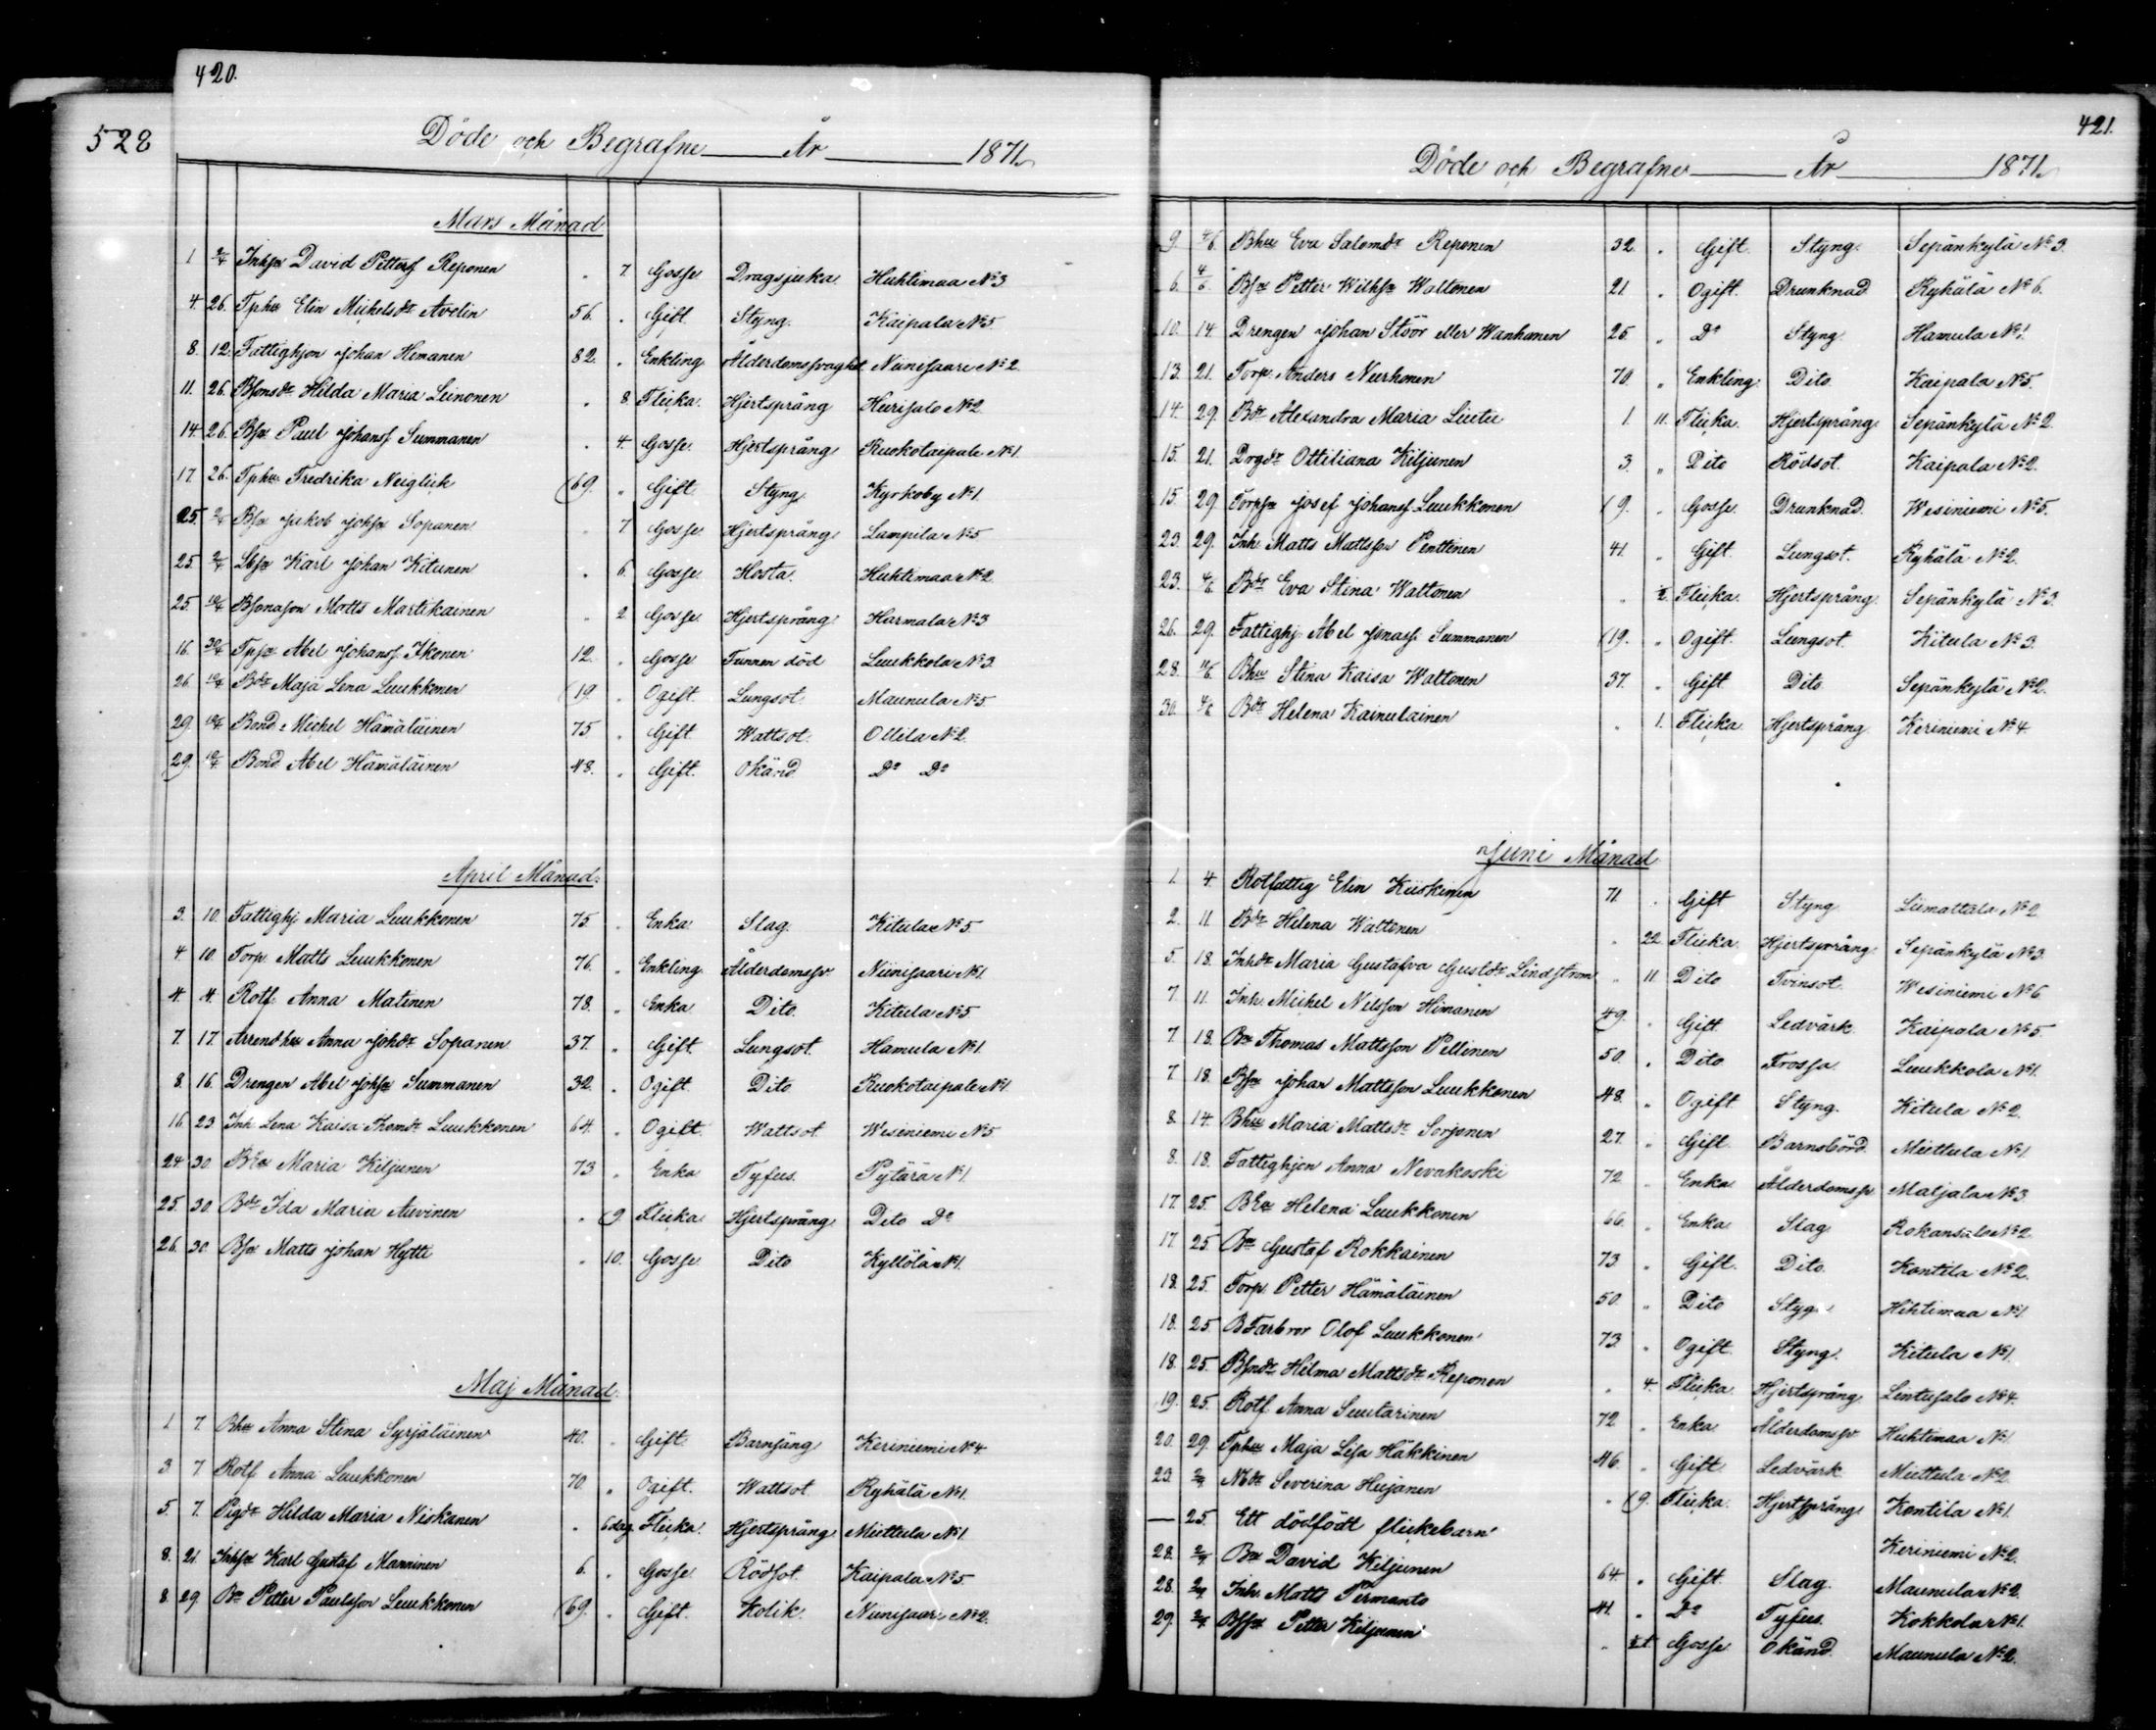 420.
528
Döde och Begrafne År 1871.
Mars Månad
1 2/4 Inhsn David Petters Reponen " 7 Gosse Dragsjuka Huhtimaa No 3
4 26. Tphu Elin Michelsdr Avelin 56. " Gift. Styng. Kaipala No 5.
8. 12. Fattighjon Johan Himanen 82. " Enkling Ålderdomssvaghet Niinisaari No 2.
11. 26. Bsonsdr Hilda Maria Leinonen " 8. Flicka. Hjertsprång Hurisalo No 2.
14. 26. Bsn Paul Johans. Summanen " 4. Gosse. Hjertsprång Ruokotaipale No 1.
17. 26. Tphu Fredrika Neiglich 69. " Gift Styng. Kyrkoby No 1.
25. 2/4 Bsn Jakob Johsn Sopanen " 7 Gosse Hjertsprång Lampila No 5
25. 2/4 Karl Johan Kitunen " 6. Gosse Hosta. Huhtimaa No 2.
25. 10/4 Bsonason Matts Martikainen " 2 Gosse Hjertsprång Harmala No 3
16. 30/4 Tpsn Abel Johans. Ikonen 12. " Gosse Funnen död Luukkola No 3.
26. 10/4 Bdr Maja Lena Luukkonen 19 " Ogift. Lungsot. Maunula No 5.
29. 10/4 Bond. Michel Hämäläinen 75. " Gift. Wattsot. Ollila No 2.
29. 10/4 Bond. Abel Hämäläinen 48. " Gift. Okänd Do Do
April Månad.
3. 10. Fattighj Maria Luukkonen 75. " Enka Slag. Kitula No 5.
4. 10. Torp. Matts Luukkonen 76. " Enkling. Ålderdomssv. Niinisaari No 1.
4. 4. Rotf. Anna Matinen 78. " Enka Dito. Kitula No 5
7. 17. Arrendhu Anna Johdr Sopanen 37. " Gift. Lungsot. Hamula No 1.
8. 16. Drengen Abel Johsn Summanen 32. " Ogift. Dito. Ruokotaipale No 1
16. 23. Inh. Lena Kaisa Thomdr Luukkonen 64. " Ogift. Wattsot. Wesiniemi No 5
24. 30. BEa Maria Kiljunen 73 " Enka Tyfus. Pytärä No 1.
25. 30. Bdr Ida Maria Auvinen " 9. Flicka Hjertsprång Dito Do
26. 30. Bsn Matts Johan Hytti " 10. Gosse Dito Kyllölä No 1.
Maj Månad.
1 7. Bhu Anna Stina Syrjäläinen 40. " Gift. Barnsäng Keriniemi No 4
3. 7 Rotf Anna Luukkonen 70. " Ogift. Wattsot. Ryhälä No 1.
5. 7. Pigdr Hilda Maria Niskanen " 6 dag. Flicka. Hjertsprång Miettula No 1.
8. 21. Inhsn Karl Gustaf Manninen 6. " Gosse. Rödsot. Kaipala No 5.
8. 29. Bn Petter Paulsson Luukkonen 69. " Gift. Kolik. Niinisaari No 2.
421.
Döde och Begrafne År 1871.
9. 4/6. Bhu Eva Salomdr Reponen 32. " Gift. Styng. Sepänkylä No 3.
6. 4/6. Bsn Petter Wilhsn Waltonen 21. " Ogift. Drunknad. Ryhälä No 6.
10. 14. Drengen Johan Stöör eller Wanhanen 25. " Do Styng. Hamula No 1.
13. 21. Torp. Anders Neerhonen 70. " Enkling. Dito. Kaipala No 5.
14. 29. Bdr Alexandra Maria Liutu 1. 11. Flicka. Hjertsprång. Sepänkylä No 2.
15. 21. Drgdr Ottiliana Kiljunen 3. " Dito Rödsot. Kaipala No 2.
15. 29. Torpsn Josef Johans. Luukkonen 9. " Gosse. Drunknad. Wesiniemi No 5.
23. 29. Inh. Matts Mattsson Penttinen 41. " Gift. Lungsot. Ryhälä No 2.
23. 4/6. Bdr Eva Stina Waltonen " ½. Flicka. Hjertsprång. Sepänkylä No 3.
26. 29. Fattighj. Abel Jonass. Summanen 19. " Ogift. Lungsot. Kitula No 3.
28. 11/6. Bhu Stina Kaisa Waltonen 37. " Gift. Dito. Sepänkylä No 2.
30. 4/6. Bdr Helena Kainulainen " 1. Flicka. Hjertsprång Keriniemi No 4
Juni Månad
1. 4. Rotfattig Elin Kiiskinen 71. " Gift Styng. Liimattala No 2
2. 11. Bdr Helena Waltonen " 22. Flicka. Hjertsprång. Sepänkylä No 3.
5. 18. Inhdr Maria Gustafva Gustdr Lindström " 11 Dito Tvinsot. Wesiniemi No 6.
7. 11. Inh. Michel Nilsson Himanen 49. " Gift. Ledvärk Kaipala No 5.
7. 18. Bn Thomas Mattsson Pellinen 50. " Dito Frossa. Luukkola No 1.
7. 18. Bsn Johan Mattsson Luukkonen 48. " Ogift Styng. Kitula No 2.
8. 14. Bhu Maria Mattsdr Sorjonen 27. " Gift. Barnsbörd. Miettula No 1
8. 18. Fattighjon Anna Nevakoski 72 " Enka Ålderdomssv Maljala No 3
17. 25. BEa Helena Luukkonen 66. " Enka Slag Rokansalo No 2
17. 25. Bn Gustaf Rokkainen 73 " Gift. Dito. Kontila No 2.
18. 25. Torp. Petter Hämäläinen 50. " Dito Styg. Hihtimaa No 1.
18. 25. BFarbror Olof Luukkonen 73. " Ogift. Styng. Kitula No 1.
18. 25. Bsndr Hilma Mattsdr Reponen " 4. Flicka. Hjertsprång. Lintusalo No 4.
19. 25. Rotf. Anna Suutarinen 72. " Enka. Ålderdomssv. Huhtimaa No 1.
20. 29. Tphu Maja Lisa Häkkinen 46. " Gift Ledvärk. Miettula No 2
23. 2/7 Nbdr Severina Hujanen " 9. Flicka. Hjertsprång. Kontila No 1.
— 25. Ett dödfödt flickebarn Keriniemi No 2.
28. 2/7 Bn David Kiljunen 64. " Gift. Slag. Maunula No 2.
28. 2/7 Inh. Matts Permanto 41. " Do Tyfus. Kokkola No 1.
29. 2/7 Petter Kiljunen " Gosse Okänd. Maunula No 2.